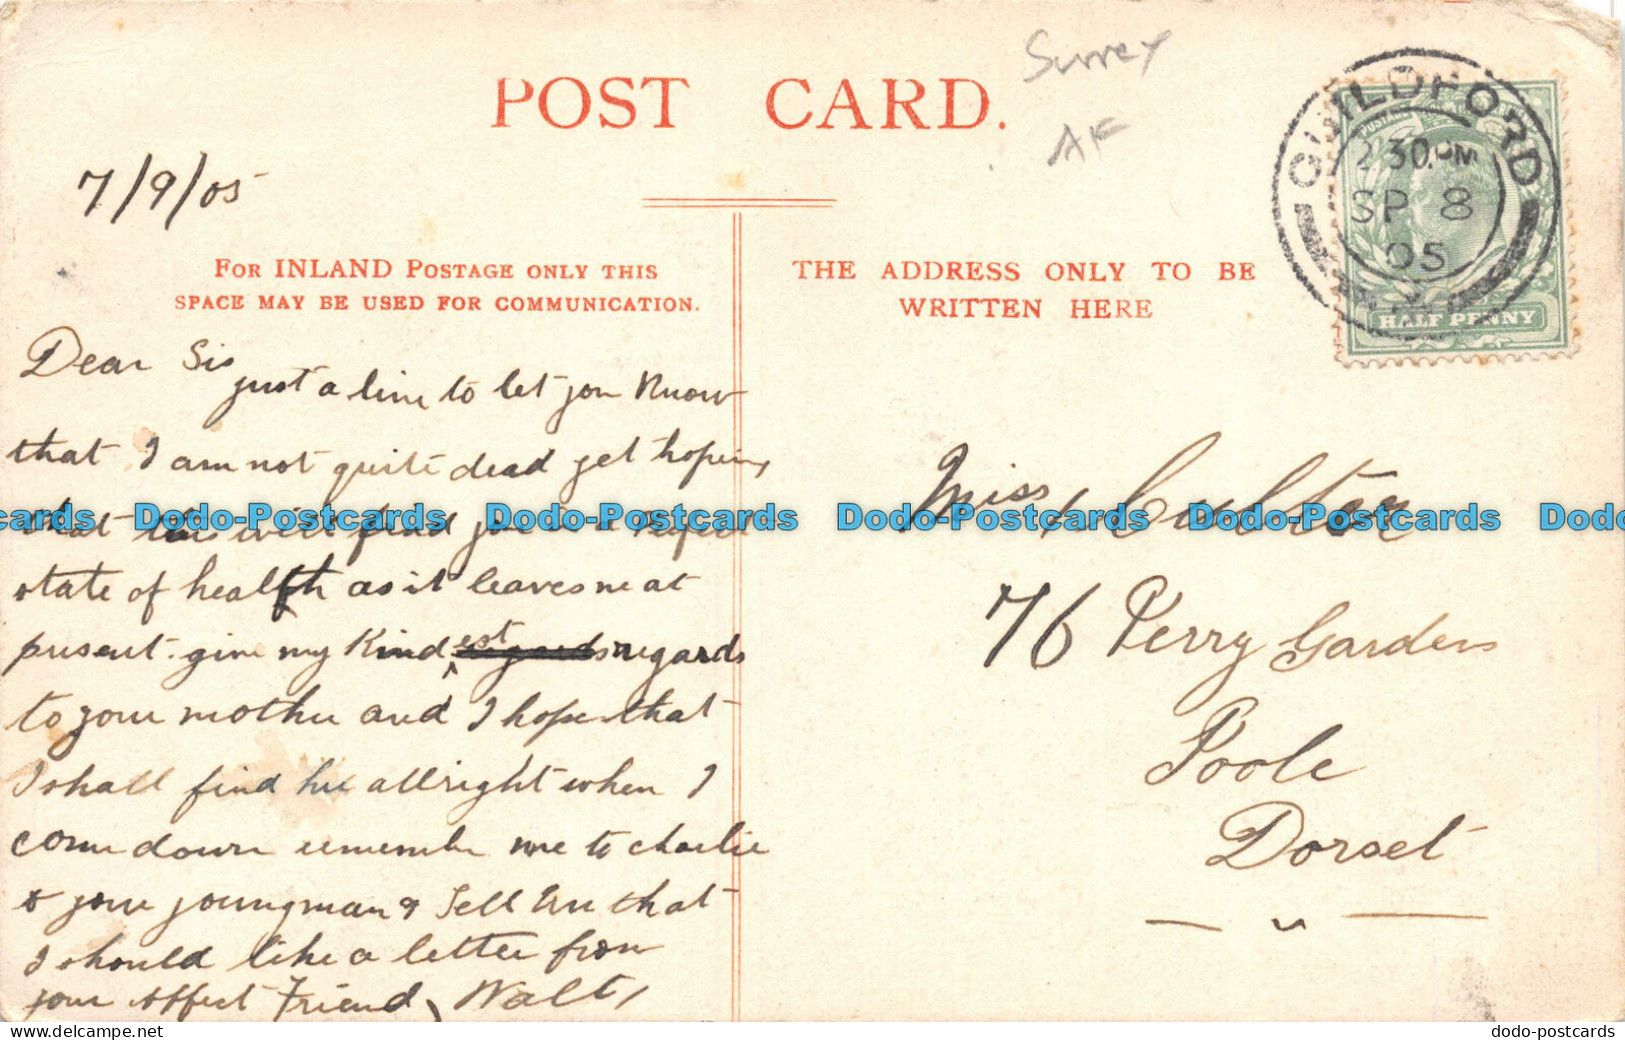 Surrey
AF
POST CARD.
7/9/05
FOR INLAND POSTAGE ONLY THIS
SPACE MAY BE USED FOR COMMUNICATION.
THE ADDRESS ONLY TO BE
WRITTEN HERE
GUILDFORD
2 30.PM
SP 8
05
HALF PENNY
Dear Sis
just a line to let you Know
that I am not quite dead yet hoping
that this will find you in a Perfect
state of health as it leaves me at
present. give my Kindest regards
to your mother and I hope that
I shall find her allright when I
come down remember me to charlie
& your youngman & Tell that
I should like a letter from
your Affect Friend Walt
Miss
76 Perry Gardens
Poole
Dorset
cards Dodo-Postcards Dodo-Postcards Dodo-Postcards Dodo-Postcards Dodo
delcampe.net
dodo-postcards